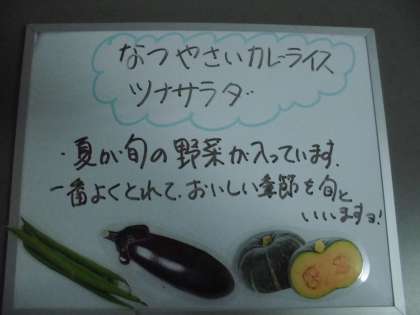 なつやさいカレーライス
ツナサラダ
・夏が旬の野菜が入っています。
一番よくとれて、おいしい季節を旬と
いいますョ!